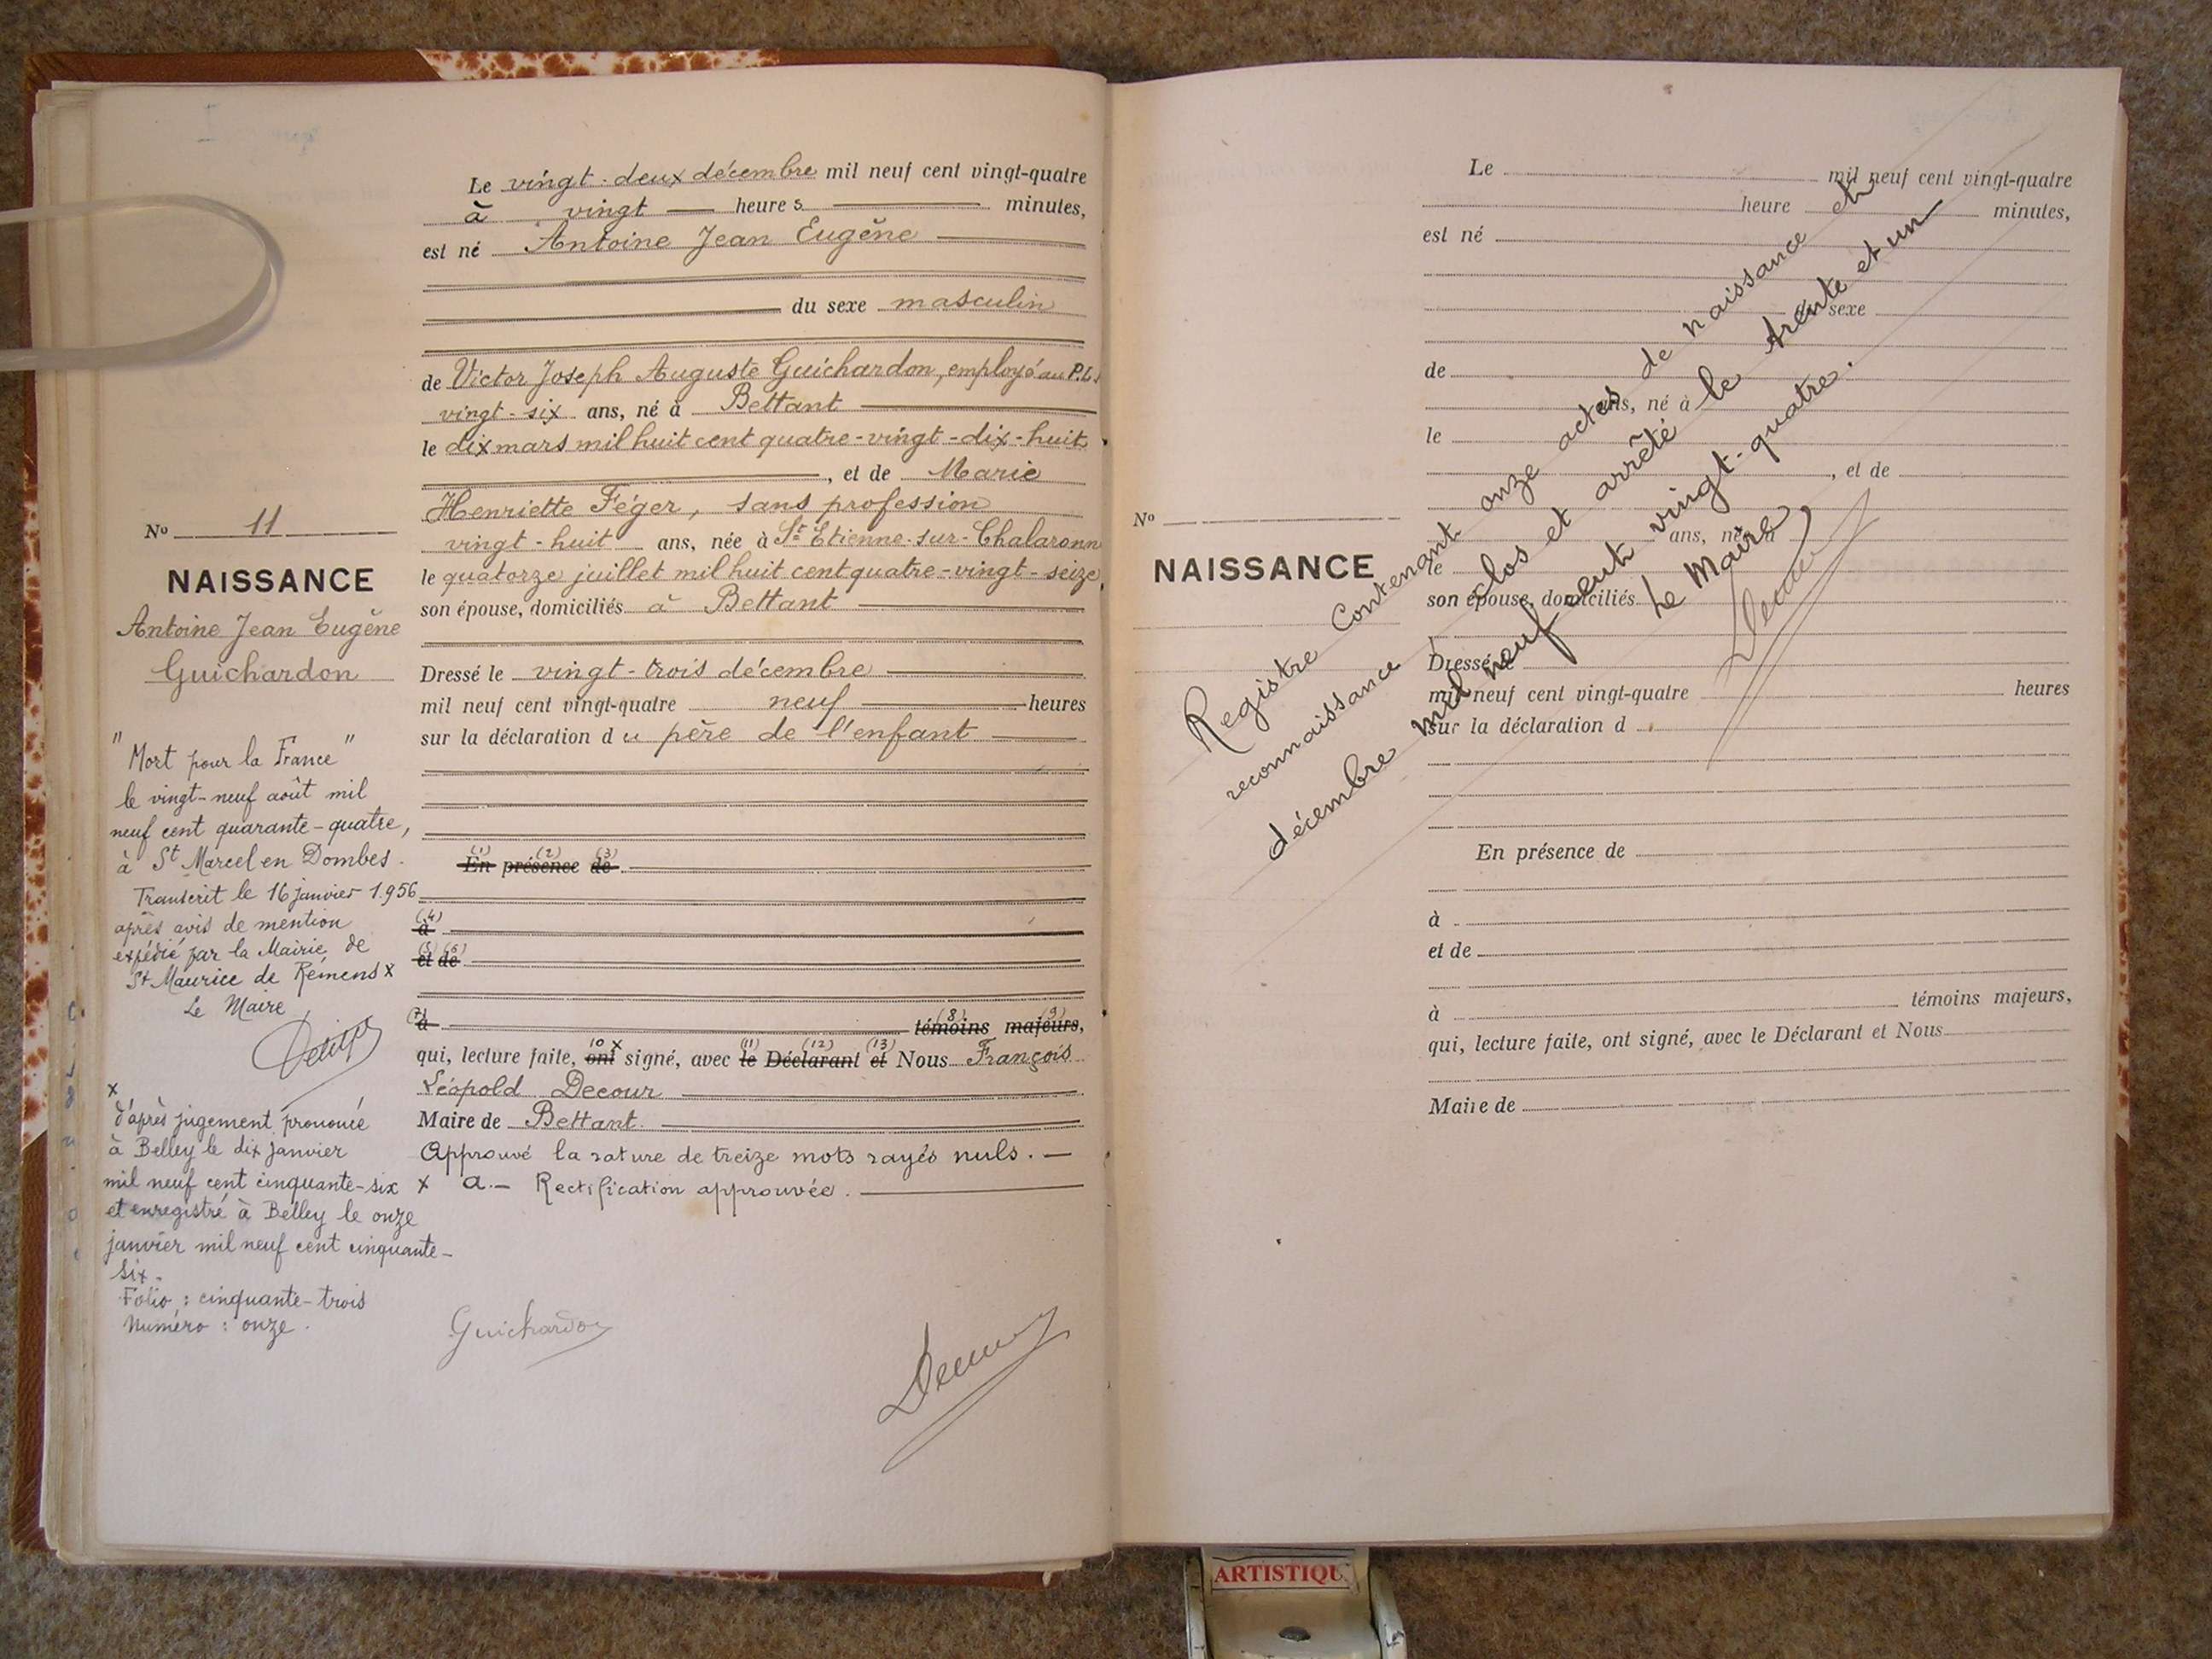 Le vingt-deux décembre mil neuf cent vingt-quatre
à vingt heures minutes,
est né Antoine Jean Eugène
du sexe masculin
de Victor Joseph Auguste Guichardon, employé au P.L.
vingt-six ans, né à Bettant
le dix mars mil huit cent quatre-vingt-dix-huit
, et de Marie
Henriette Féger, sans profession
vingt-huit ans, née à St Etienne-sur-Chalaronn
le quatorze juillet mil huit cent quatre-vingt-seize,
son épouse, domiciliés à Bettant
Dressé le vingt-trois décembre
mil neuf cent vingt-quatre neuf heures
sur la déclaration du père de l'enfant
(1) (2) (3)
En présence de
(4)
à
(5) (6)
et de
(7) (8) (9)
à témoins majeurs,
10 x (11) (12) (13)
qui, lecture faite, ont signé, avec le Déclarant et Nous François
Léopold Decour
Maire de Bettant.
Approuvé la rature de treize mots rayés nuls. —
x a. — Rectification approuvée.
Guichardon
Decour
Nº 11
NAISSANCE
Antoine Jean Eugène
Guichardon
"Mort pour la France"
le vingt-neuf août mil
neuf cent quarante-quatre,
à St Marcel en Dombes.
Transcrit le 16 janvier 1.956
après avis de mention
expédié par la Mairie de
St Maurice de Rémens x
Le Maire
x
d'après jugement prononcé
à Belley le dix janvier
mil neuf cent cinquante-six
et enregistré à Belley le onze
janvier mil neuf cent cinquante-
six.
Folio : cinquante-trois
Numéro : onze.
Le mil neuf cent vingt-quatre
heure minutes,
est né
du sexe
de
ans, né à
le
, et de
ans, née à
le
son épouse, domiciliés
Dressé le
mil neuf cent vingt-quatre heures
sur la déclaration d
En présence de
à
et de
à témoins majeurs,
qui, lecture faite, ont signé, avec le Déclarant et Nous
Maire de
Nº
NAISSANCE
Registre contenant onze actes de naissance et
reconnaissance, clos et arrêté le trente et un
décembre mil neuf cent vingt-quatre.
Le Maire,
Decour
ARTISTIQU